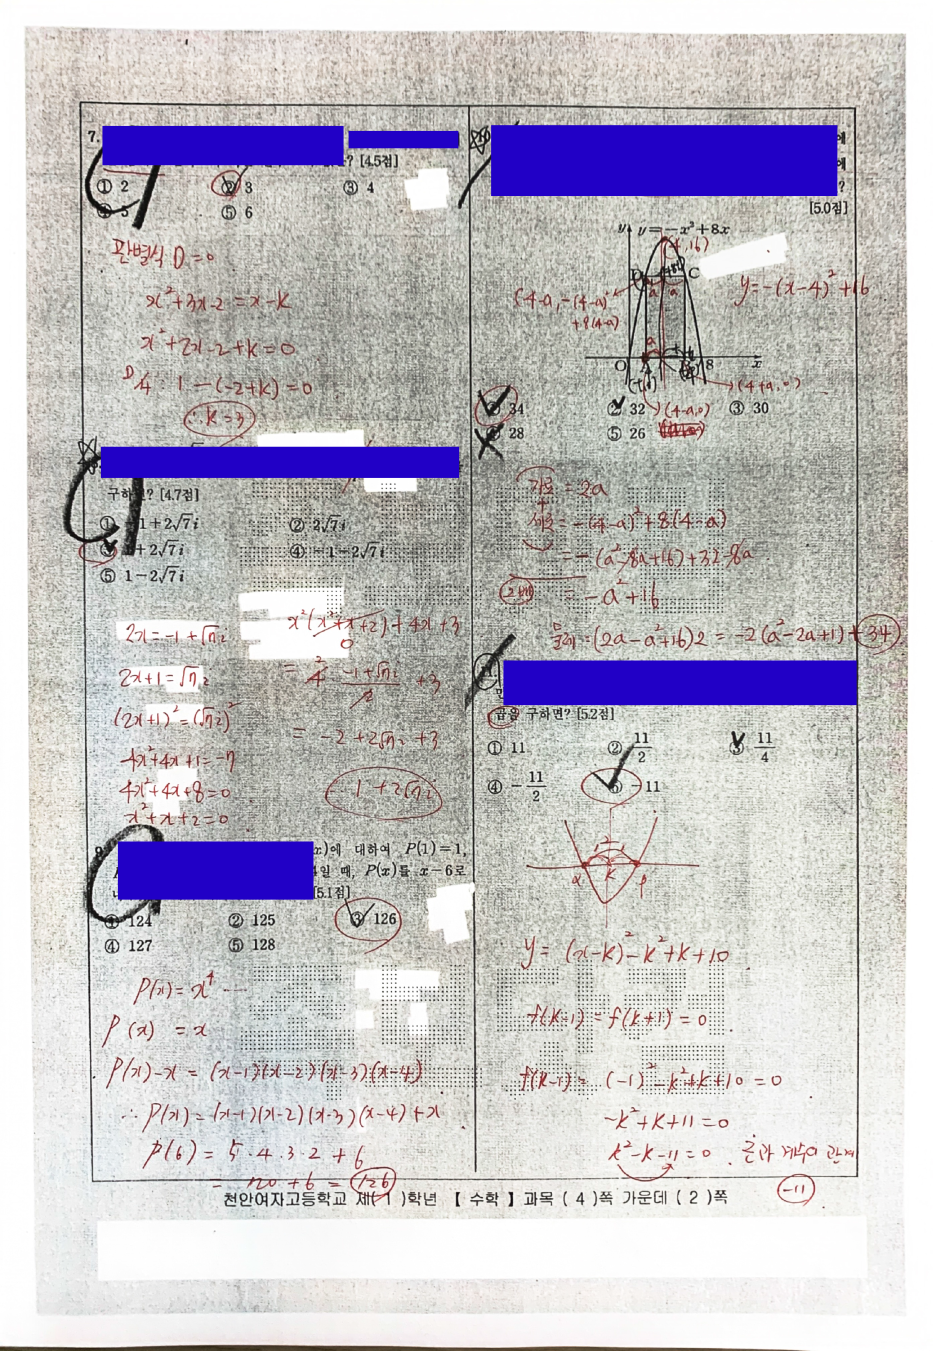 7.
? [4.5점]
① 2
② 3
③ 4
④ 5
⑤ 6
판별식 D = 0
x²+3x-2 = x-k
x²+2x-2+k = 0
D/4 : 1-(-2+k) = 0
∴ k = 3
구하면? [4.7점]
① -1+2√7i
② 2√7i
③ 1+2√7i
④ -1-2√7i
⑤ 1-2√7i
2x = -1+√7i
2x+1 = √7i
(2x+1)² = (√7i)²
4x²+4x+1 = -7
4x²+4x+8 = 0
x²+x+2 = 0
x²(x²+x+2)+4x+3
0
= 4 -1+√7i / 2 +3
= -2+2√7i+3
1+2√7i
9.
x)에 대하여 P(1)=1,
4일 때, P(x)를 x-6로
[5.1점]
① 124
② 125
③ 126
④ 127
⑤ 128
P(x) = x⁴ ---
P(x) = x
P(x)-x = (x-1)(x-2)(x-3)(x-4)
∴ P(x) = (x-1)(x-2)(x-3)(x-4)+x
P(6) = 5·4·3·2+6
= 120+6 = 126
10
에
에
?
[5.0점]
y
y=-x²+8x
(4,16)
D
C
a
a
y=-(x-4)²+16
(4-a, -(4-a)²
+8(4-a))
a
O
A
B
8
x
(4+a, 0)
(4-a, 0)
① 34
② 32
③ 30
④ 28
⑤ 26
가로 = 2a
+
세로 = -(4-a)²+8(4-a)
= -(a²-8a+16)+32-8a
= -a²+16
둘레 : (2a-a²+16)2 = -2(a²-2a+1)+34
11
곱을 구하면? [5.2점]
① 11
② 11/2
③ 11/4
④ -11/2
⑤ -11
2
α
k
β
y = (x-k)²-k²+k+10
f(k-1) = f(k+1) = 0
f(k-1) = (-1)²-k²+k+10 = 0
-k²+k+11 = 0
k²-k-11 = 0. 근과 계수의 관계
-11
천안여자고등학교 제( 1 )학년 【 수학 】 과목 ( 4 )쪽 가운데 ( 2 )쪽